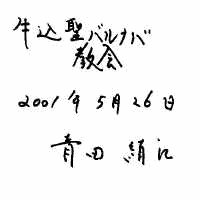 牛込聖バルナバ
教会
2001年5月26日
青田絹江